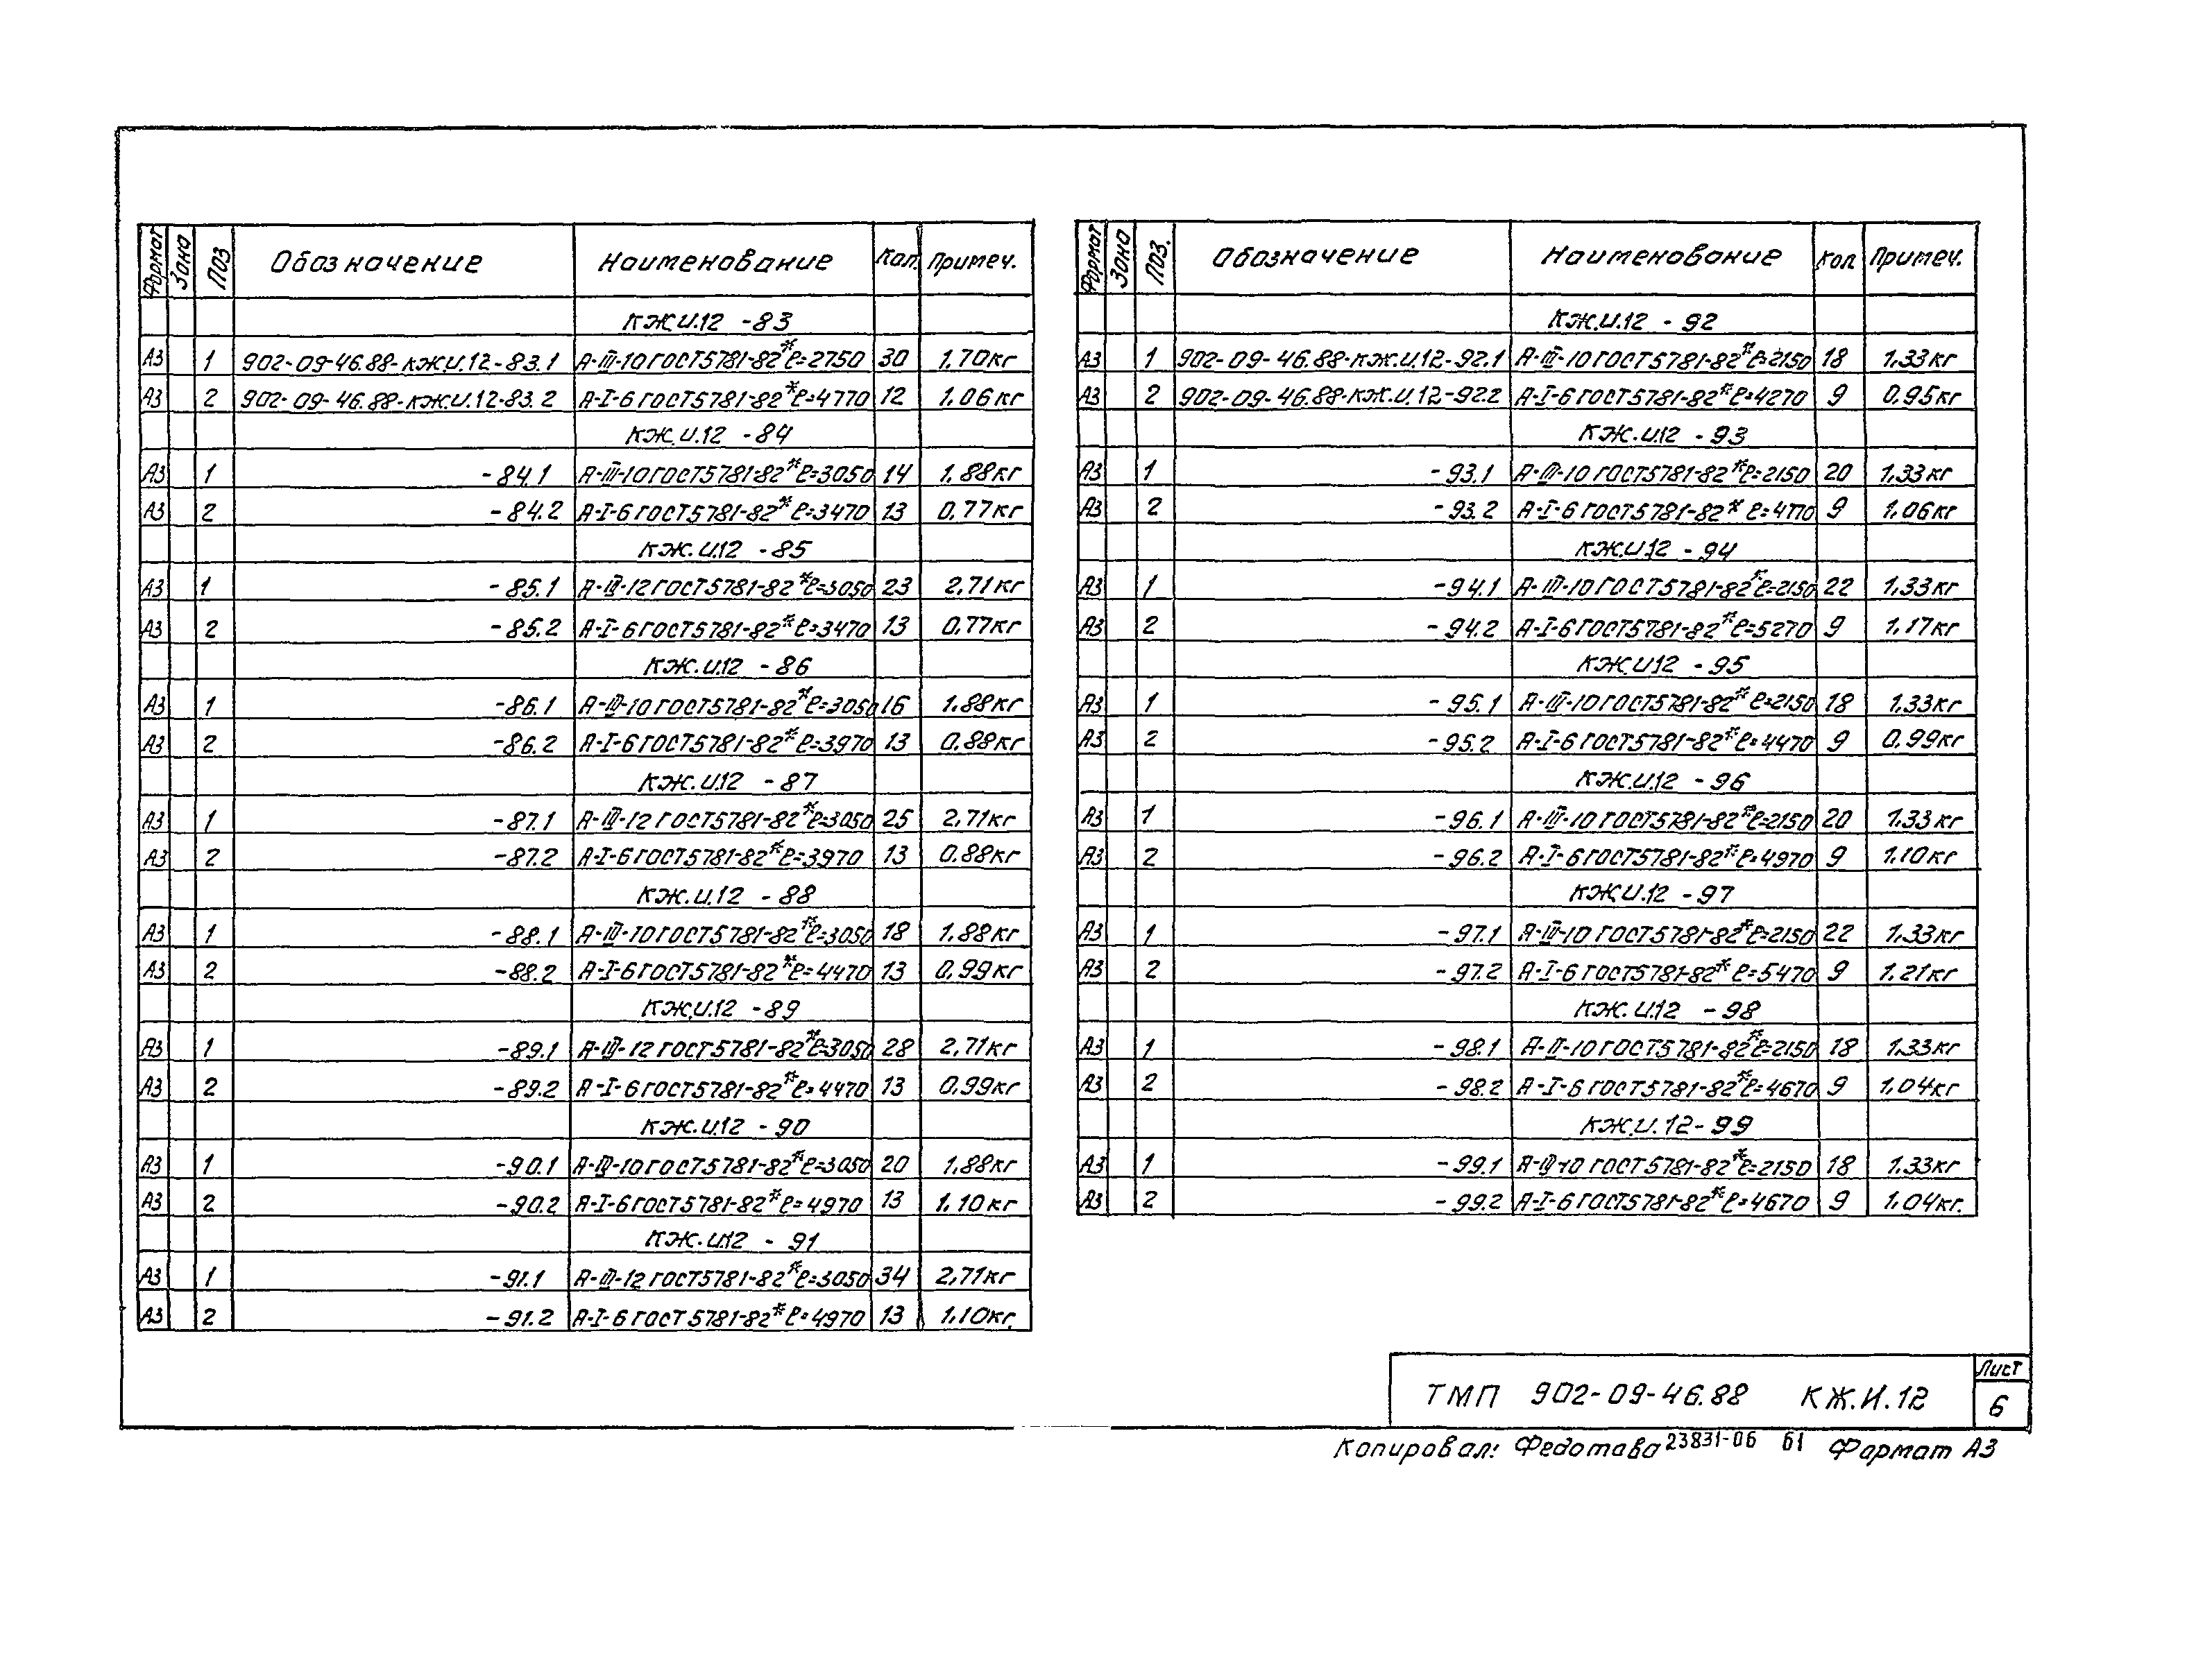 Формат Зона Поз Обозначение Наименование Кол. Примеч.
КЖ.И.12 -83
А3 1 902-09-46.88-КЖ.И.12-83.1 А-III-10 ГОСТ 5781-82* ℓ=2750 30 1.70кг
А3 2 902-09-46.88-КЖ.И.12-83.2 А-I-6 ГОСТ 5781-82* ℓ=4770 12 1.06кг
КЖ.И.12 -84
А3 1 -84.1 А-III-10 ГОСТ 5781-82* ℓ=3050 14 1.88кг
А3 2 -84.2 А-I-6 ГОСТ 5781-82* ℓ=3470 13 0.77кг
КЖ.И.12 -85
А3 1 -85.1 А-III-12 ГОСТ 5781-82* ℓ=3050 23 2,71кг
А3 2 -85.2 А-I-6 ГОСТ 5781-82* ℓ=3470 13 0.77кг
КЖ.И.12 -86
А3 1 -86.1 А-III-10 ГОСТ 5781-82* ℓ=3050 16 1.88кг
А3 2 -86.2 А-I-6 ГОСТ 5781-82* ℓ=3970 13 0.88кг
КЖ.И.12 -87
А3 1 -87.1 А-III-12 ГОСТ 5781-82* ℓ=3050 25 2,71кг
А3 2 -87.2 А-I-6 ГОСТ 5781-82* ℓ=3970 13 0.88кг
КЖ.И.12 -88
А3 1 -88.1 А-III-10 ГОСТ 5781-82* ℓ=3050 18 1.88кг
А3 2 -88.2 А-I-6 ГОСТ 5781-82* ℓ=4470 13 0.99кг
КЖ.И.12 -89
А3 1 -89.1 А-III-12 ГОСТ 5781-82* ℓ=3050 28 2,71кг
А3 2 -89.2 А-I-6 ГОСТ 5781-82* ℓ=4470 13 0.99кг
КЖ.И.12 -90
А3 1 -90.1 А-III-10 ГОСТ 5781-82* ℓ=3050 20 1.88кг
А3 2 -90.2 А-I-6 ГОСТ 5781-82* ℓ=4970 13 1.10кг
КЖ.И.12 - 91
А3 1 -91.1 А-III-12 ГОСТ 5781-82* ℓ=3050 34 2,71кг
А3 2 -91.2 А-I-6 ГОСТ 5781-82* ℓ=4970 13 1.10кг.
Формат Зона Поз. Обозначение Наименование Кол Примеч.
КЖ.И.12 - 92
А3 1 902-09-46.88-КЖ.И.12-92.1 А-III-10 ГОСТ 5781-82* ℓ=2150 18 1.33кг
А3 2 902-09-46.88-КЖ.И.12-92.2 А-I-6 ГОСТ 5781-82* ℓ=4270 9 0.95кг
КЖ.И.12 - 93
А3 1 -93.1 А-III-10 ГОСТ 5781-82* ℓ=2150 20 1.33кг
А3 2 -93.2 А-I-6 ГОСТ 5781-82* ℓ=4770 9 1.06кг
КЖ.И.12 - 94
А3 1 -94.1 А-III-10 ГОСТ 5781-82* ℓ=2150 22 1.33кг
А3 2 -94.2 А-I-6 ГОСТ 5781-82* ℓ=5270 9 1.17кг
КЖ.И.12 - 95
А3 1 -95.1 А-III-10 ГОСТ 5781-82* ℓ=2150 18 1.33кг
А3 2 -95.2 А-I-6 ГОСТ 5781-82* ℓ=4470 9 0.99кг
КЖ.И.12 - 96
А3 1 -96.1 А-III-10 ГОСТ 5781-82* ℓ=2150 20 1.33кг
А3 2 -96.2 А-I-6 ГОСТ 5781-82* ℓ=4970 9 1.10кг
КЖ.И.12 -97
А3 1 -97.1 А-III-10 ГОСТ 5781-82* ℓ=2150 22 1.33кг
А3 2 -97.2 А-I-6 ГОСТ 5781-82* ℓ=5470 9 1.21кг
КЖ.И.12 -98
А3 1 -98.1 А-II-10 ГОСТ 5781-82* ℓ=2150 18 1.33кг
А3 2 -98.2 А-I-6 ГОСТ 5781-82* ℓ=4670 9 1.04кг
КЖ.И.12-99
А3 1 -99.1 А-III-10 ГОСТ 5781-82* ℓ=2150 18 1.33кг
А3 2 -99.2 А-I-6 ГОСТ 5781-82* ℓ=4670 9 1.04кг.
ТМП 902-09-46.88 КЖ.И.12
Лист
6
Копировал: Федотава 23831-06 61 Формат А3